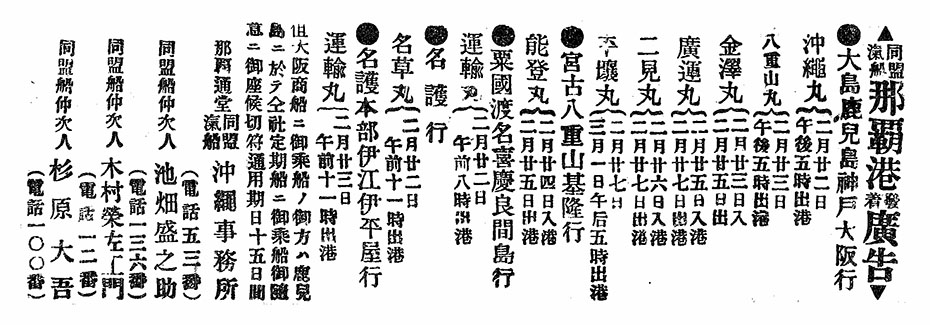 ▲同盟滊船那覇港發着廣告▼
●大島鹿兒島神戸大阪行
沖繩丸{二月廿二日
午後五時出港
八重山丸{二月廿三日
午後五時出港
金澤丸{二月廿三日入
二月廿五日出
廣運丸{二月廿五日入港
二月廿七日出港
二見丸{二月廿六日入港
二月廿七日出港
平壤丸{二月廿七日
三月一日午后五時出港
●宮古八重山基隆行
能登丸{二月廿四日入港
二月廿五日出港
●粟國渡名喜慶良間島行
運輸丸{二月廿二日
午前八時出港
●名護行
名草丸{二月廿二日
午前十一時出港
●名護本部伊江伊平屋行
運輸丸{二月廿三日
午前十一時出港
但大阪商船ニ御乘船ノ御方ハ鹿兒
島ニ於テ仝社定期船ニ御乘船御隨
意ニ御座候切符通用期日十五日間
那覇通堂同盟滊船沖繩事務所
(電話五三番)
同盟船仲次人 池畑盛之助
(電話一三六番)
同盟船仲次人 木村榮左エ門
(電話一二番)
同盟船仲次人 杉原大吾
(電話一〇〇番)